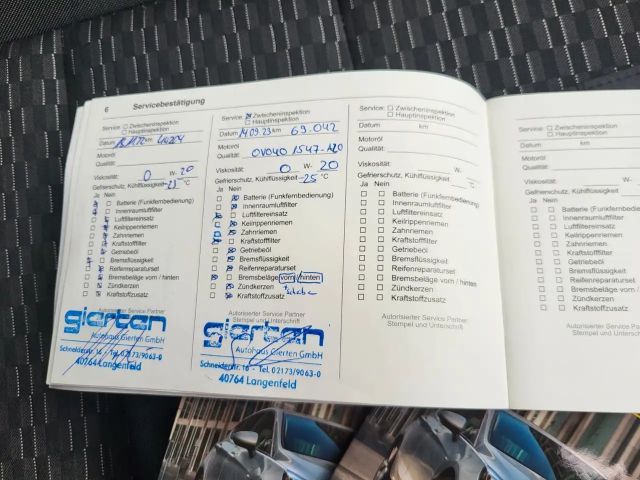 6 Servicebestätigung
Service: Zwischeninspektion
Hauptinspektion
Datum km
Motoröl
Qualität:
Viskosität: 0 W- 20
Gefrierschutz, Kühlflüssigkeit °C
Ja Nein
Batterie (Funkfernbedienung)
Innenraumluftfilter
Luftfiltereinsatz
Keilrippenriemen
Zahnriemen
Kraftstofffilter
Getriebeöl
Bremsflüssigkeit
Reifenreparaturset
Bremsbeläge vorn / hinten
Zündkerzen
Kraftstoffzusatz
Autorisierter Service Partner
gierten
Autohaus Gierten GmbH
Schneiderstr. 16 - Tel. 02173/9063-0
40764 Langenfeld
Service: Zwischeninspektion
Hauptinspektion
Datum 14.09.23 km 69.042
Motoröl
Qualität: 0V040 1547-A20
Viskosität: 0 W- 20
Gefrierschutz, Kühlflüssigkeit -25 °C
Ja Nein
Batterie (Funkfernbedienung)
Innenraumluftfilter
Luftfiltereinsatz
Keilrippenriemen
Zahnriemen
Kraftstofffilter
Getriebeöl
Bremsflüssigkeit
Reifenreparaturset
Bremsbeläge vorn / hinten
Zündkerzen
Kraftstoffzusatz
Autorisierter Service Partner
Stempel und Unterschrift
gierten
Autohaus Gierten GmbH
Schneiderstr. 16 - Tel. 02173/9063-0
40764 Langenfeld
Service: Zwischeninspektion
Hauptinspektion
Datum km
Motoröl
Qualität:
Viskosität: W-
Gefrierschutz, Kühlflüssigkeit °C
Ja Nein
Batterie (Funkfernbedienung)
Innenraumluftfilter
Luftfiltereinsatz
Keilrippenriemen
Zahnriemen
Kraftstofffilter
Getriebeöl
Bremsflüssigkeit
Reifenreparaturset
Bremsbeläge vorn / hinten
Zündkerzen
Kraftstoffzusatz
Autorisierter Service Partner
Stempel und Unterschrift
Service: Zwischeninspektion
Hauptinspektion
Datum km
Motoröl
Qualität:
Viskosität:
Gefrierschutz, Kühlflüssigkeit
Ja Nein
Batterie (Funkfernbedienung)
Innenraumluftfilter
Luftfiltereinsatz
Keilrippenriemen
Zahnriemen
Kraftstofffilter
Getriebeöl
Bremsflüssigkeit
Reifenreparaturset
Bremsbeläge vorn / hinten
Zündkerzen
Kraftstoffzusatz
Autorisierter Service Partner
Stempel und Unterschrift